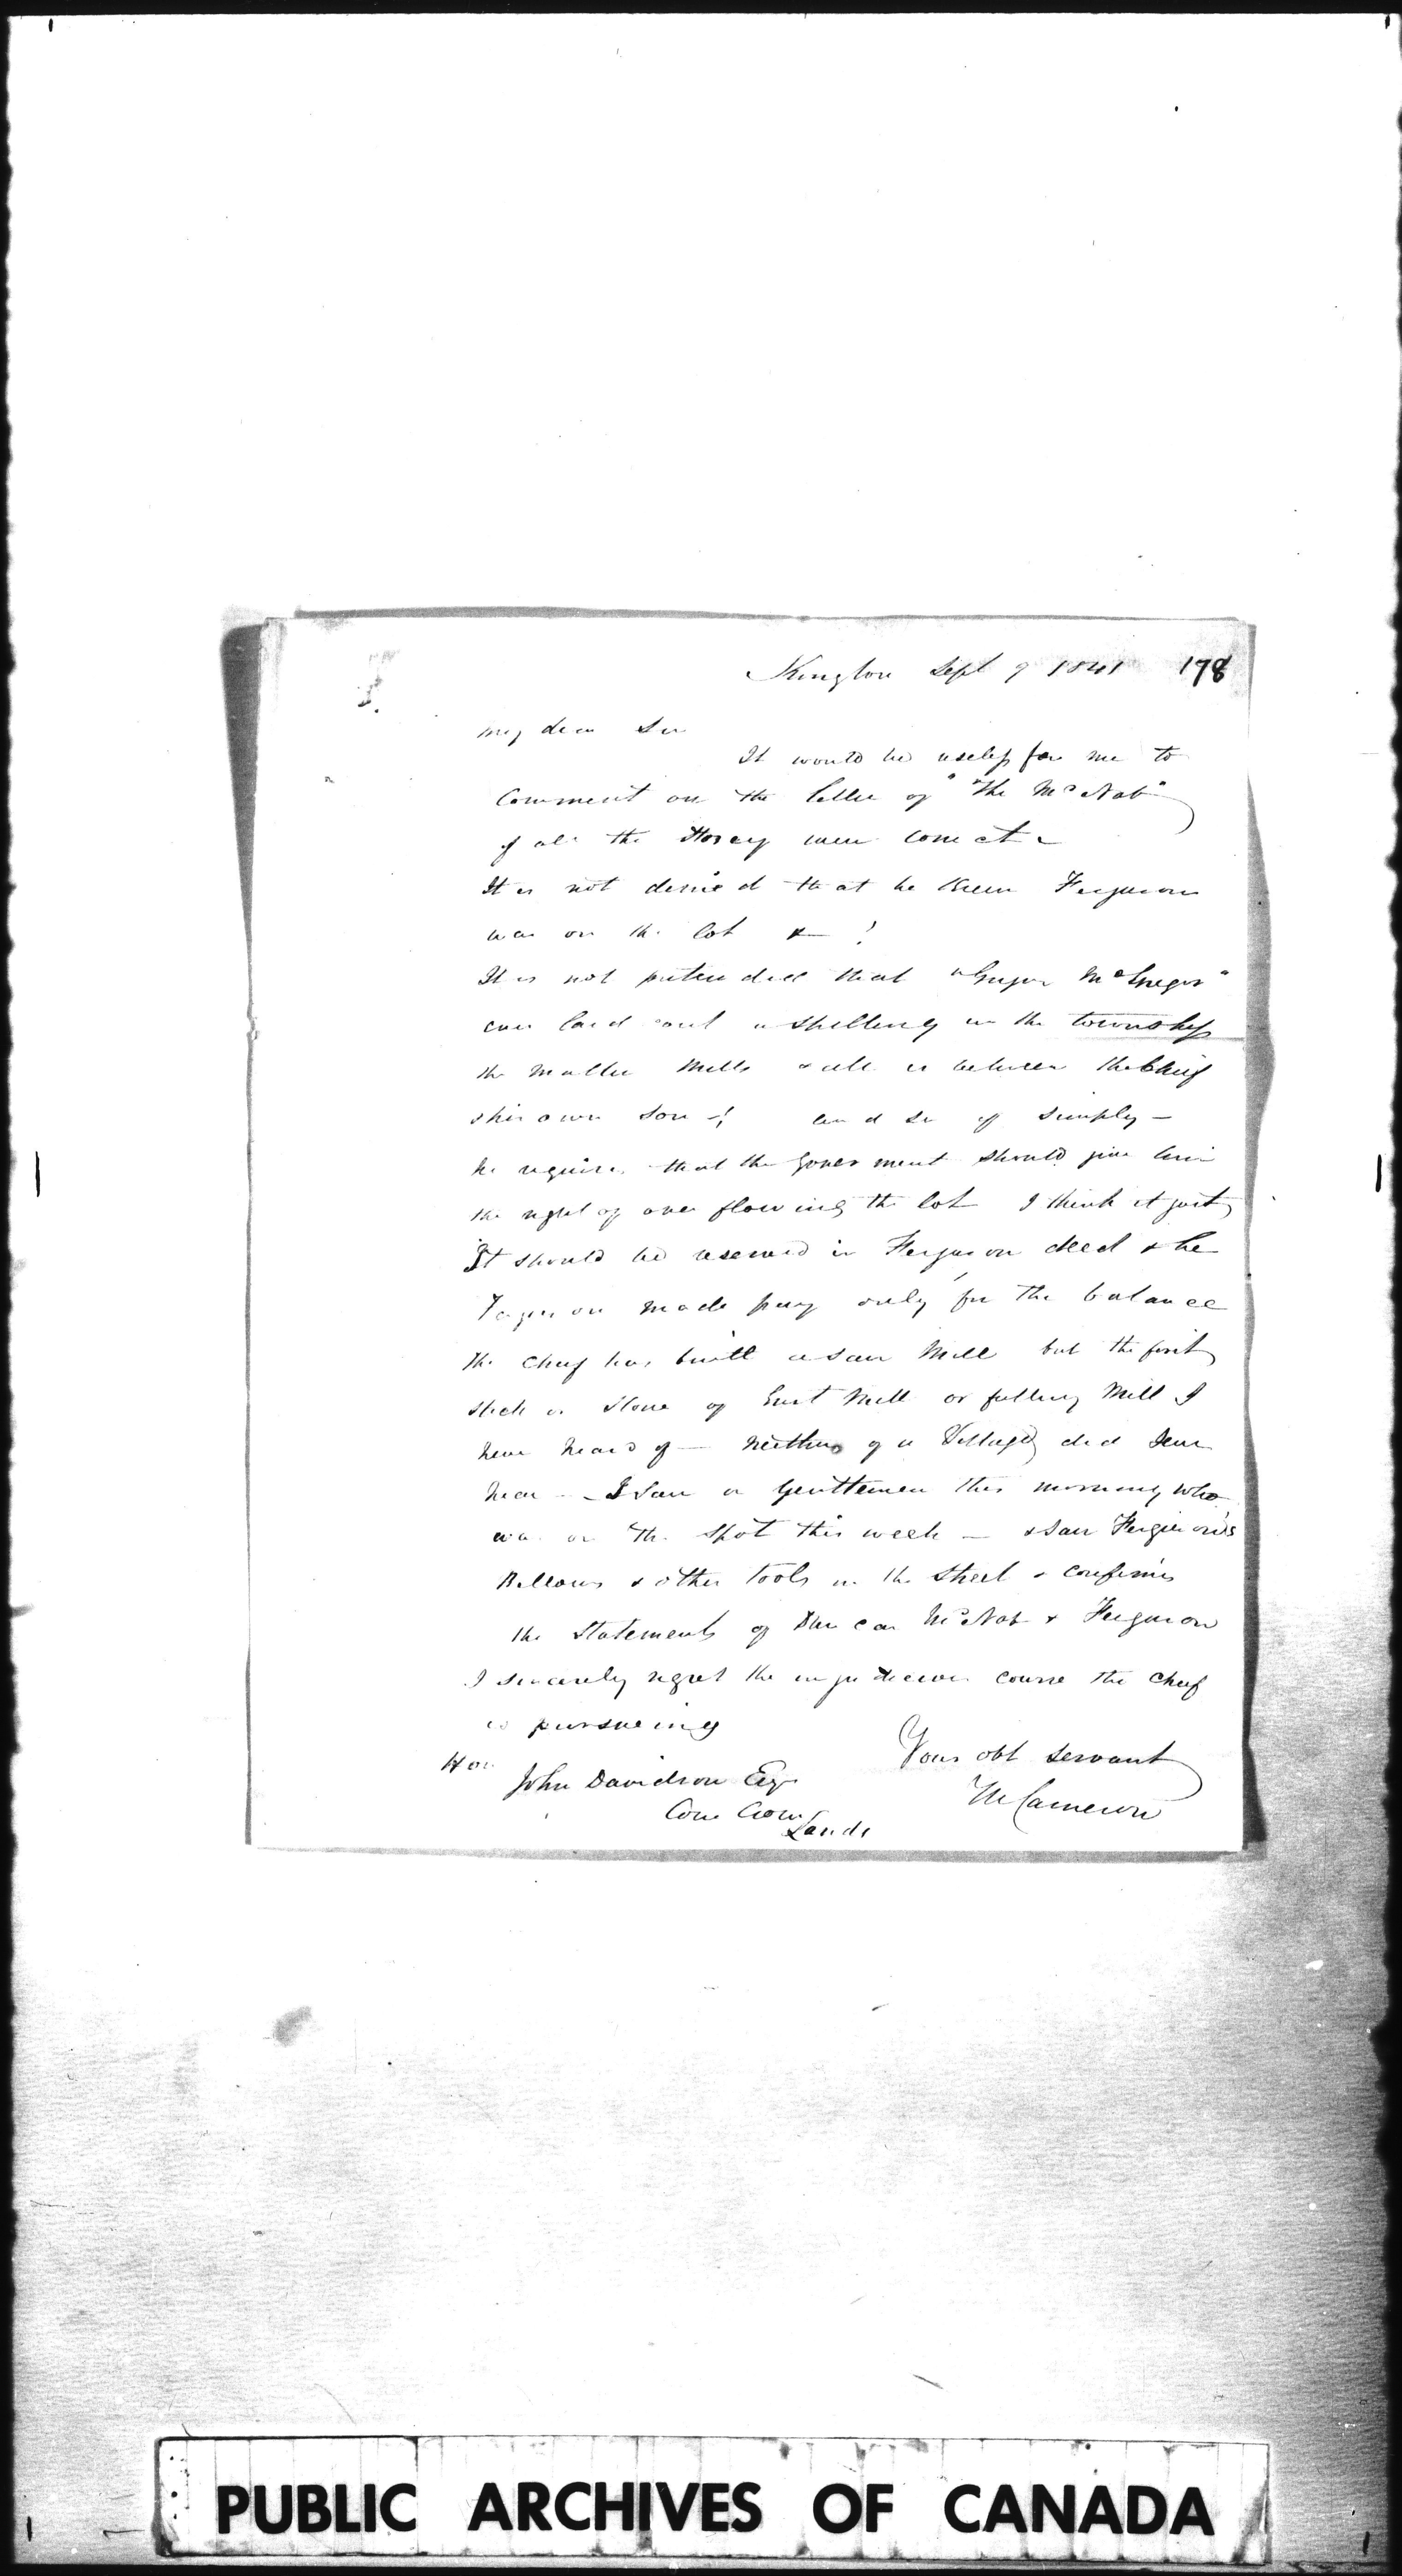 Kingston Sept 9 1841 178
My dear Sir
It would be useless for me to
Comment on the letter of "The McNab"
if all the Storey were correct
It is not denied that he knew Ferguson
was on the lot & !
It is not pretended that "Gregor McGregor"
ever laid out a shilling in the township
the matter Mills & all is between the Chief
& his own Son -! and Sir if simply -
he requires that the Government should give him
the right of over flowing the lot I think it just
It should be reserved in Ferguson deed & he
Ferguson made pay only for the balance
The Chief has built a Saw Mill but the first
stick or Stone of Grist Mill or fulling Mill I
never heard of - neither of a Village did I ever
hear - I Saw a Gentlemen this morning who
was on the Spot this week - & saw Ferguson's
Bellows & other tools in the Street & confirms
the Statements of Duncan McNab & Ferguson
I sincerely regret the injudicious course the Chief
is pursueing
Your obt servant
M Cameron
Hon
John Davidson Esq
Com Crown
Lands
PUBLIC ARCHIVES OF CANADA